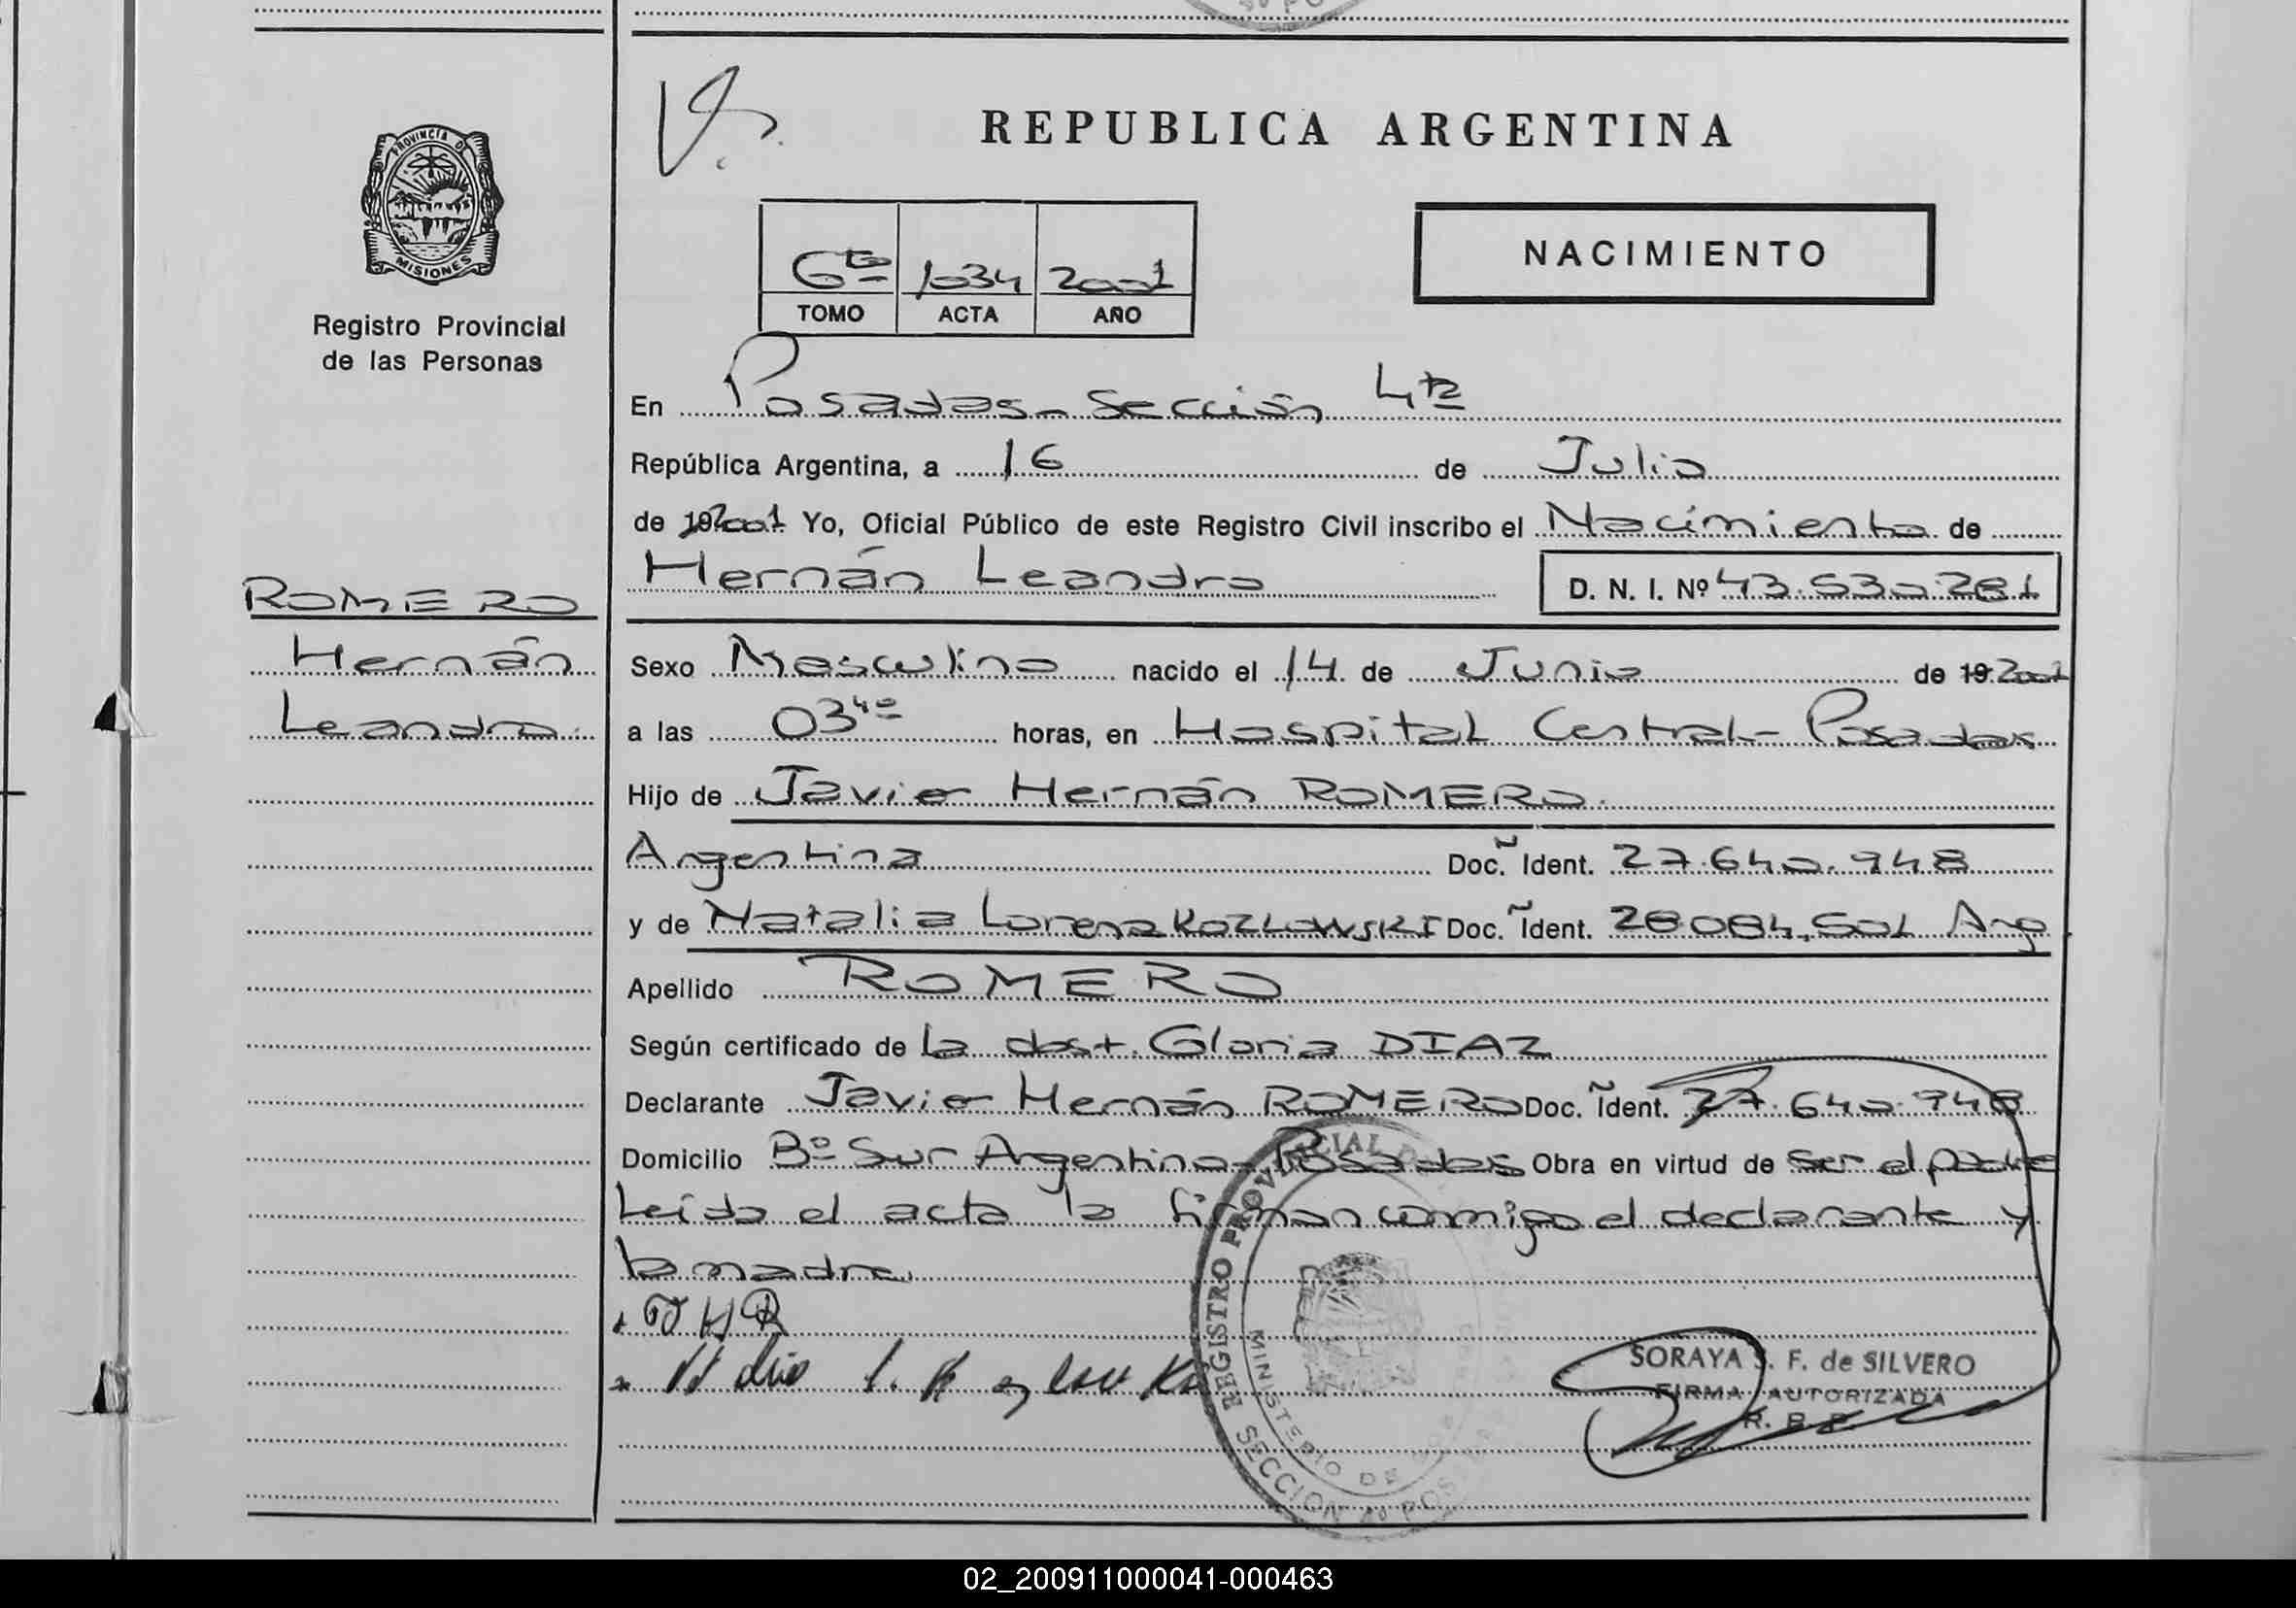 REPUBLICA ARGENTINA
PROVINCIA DE
MISIONES
Registro Provincial
de las Personas
6to 1034 2001
TOMO ACTA AÑO
NACIMIENTO
En Posadas - Sección 4ta
República Argentina, a 16 de Julio
de 19 2001 Yo, Oficial Público de este Registro Civil inscribo el Nacimiento de
Hernán Leandro D. N. I. Nº 43.530.281
ROMERO
Hernán
Leandro.
Sexo Masculino nacido el 14 de Junio de 19 2001
a las 03 40 horas, en Hospital Central - Posadas
Hijo de Javier Hernán ROMERO.
Argentina Doc. Ident. 27.640.948
y de Natalia Lorena KOZLOWSKI Doc. Ident. 28084.501 Arg
Apellido ROMERO
Según certificado de la dost. Gloria DIAZ
Declarante Javier Hernán ROMERO Doc. Ident. 27.640.948
Domicilio Bº Sur Argentino - Posadas Obra en virtud de ser el padre
Leída el acta la firman conmigo el declarante y
la madre.
JHR
REGISTRO PROVINCIAL D
MINISTERIO DE
SECCION 4º POS
SORAYA S. F. de SILVERO
FIRMA AUTORIZADA
R. P. P.
02_200911000041-000463